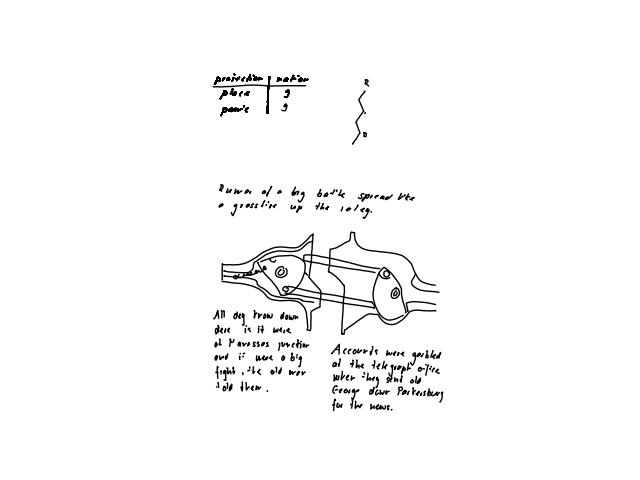 projection nation
place 9
panic 9
R
D
Rumor of a big battle spread like
a grassfire up the valley.
All dey know down
dere is it were
at Manassas junction
and it were a big
fight, the old man
told them.
Accounts were garbled
at the telegraph office
when they sent old
George down Parkersburg
for the news.